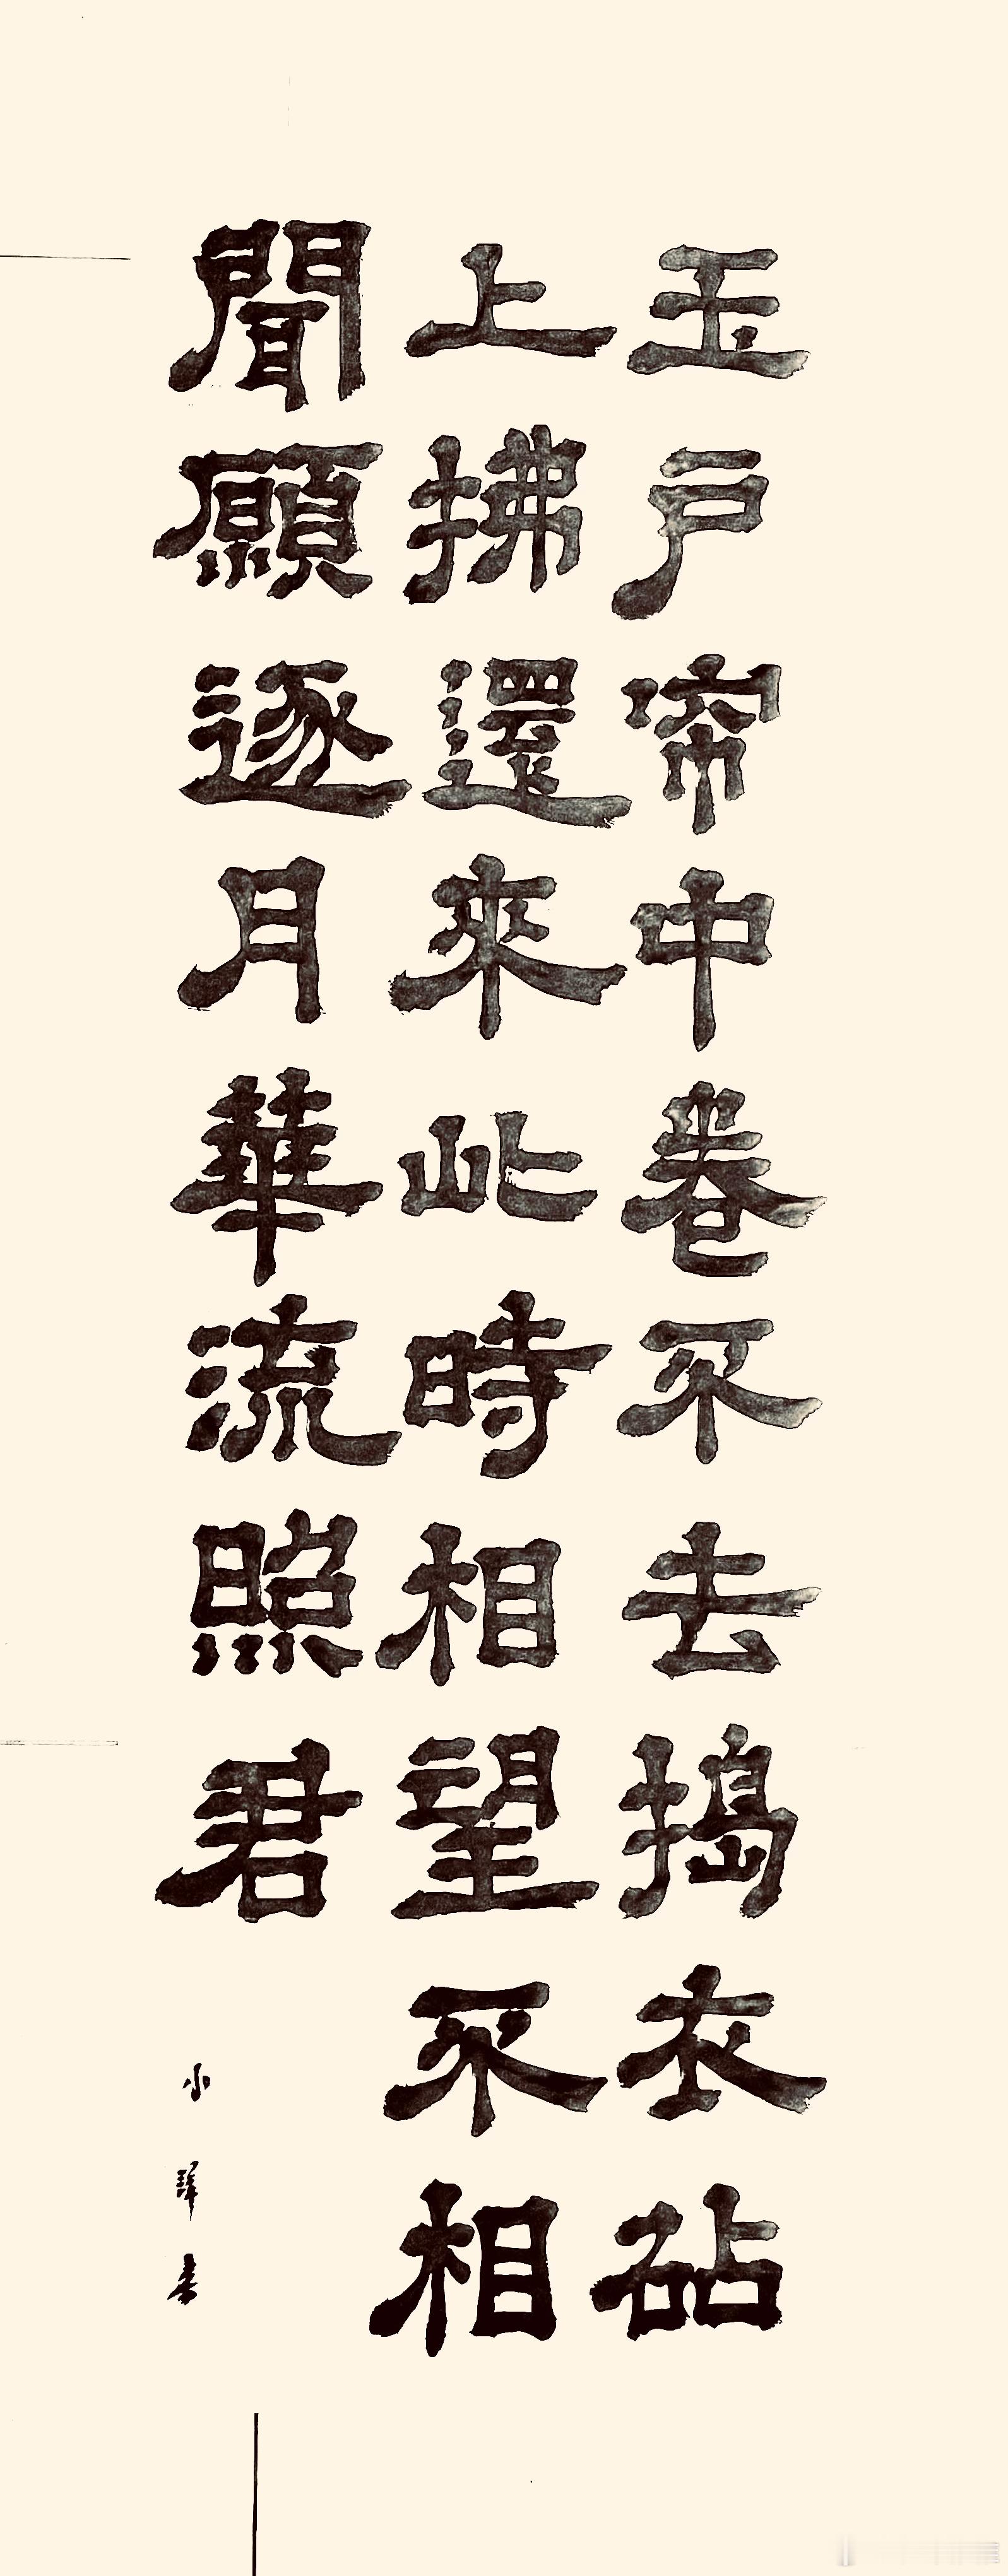 玉戶帘中卷不去搗衣砧
上拂還來此時相望不相
聞願逐月華流照君
小